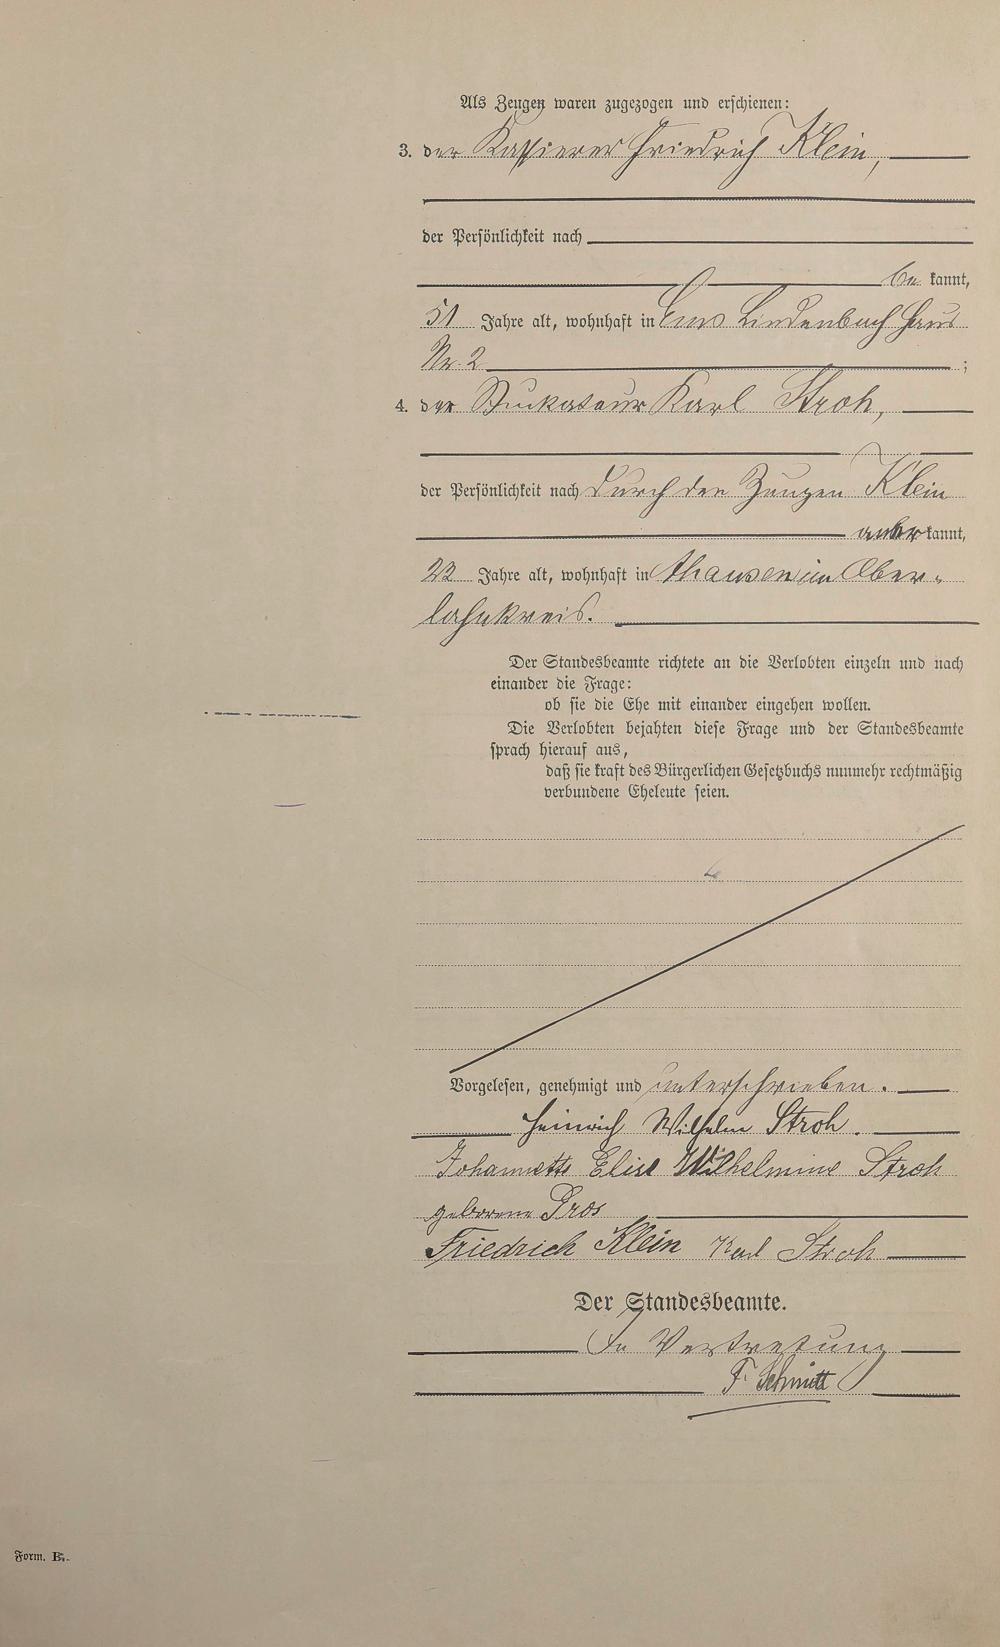 Als Zeugen waren zugezogen und erschienen:
3. der Kassierer Friedrich Klein,
der Persönlichkeit nach
be kannt,
51 Jahre alt, wohnhaft in Ems Lindenbach Haus
Nr. 2 ;
4. der Stukateur Karl Stroh,
der Persönlichkeit nach durch den Zeugen Klein
aner kannt,
Jahre alt, wohnhaft in im Ober-
lahnkreis.
Der Standesbeamte richtete an die Verlobten einzeln und nach
einander die Frage:
ob sie die Ehe mit einander eingehen wollen.
Die Verlobten bejahten diese Frage und der Standesbeamte
sprach hierauf aus,
daß sie kraft des Bürgerlichen Gesetzbuchs nunmehr rechtmäßig
verbundene Eheleute seien.
Vorgelesen, genehmigt und unterschrieben.
Heinrich Wilhelm Stroh.
Johannette Elise Wilhelmine Stroh
geborene
Friedrich Klein Karl Stroh
Der Standesbeamte.
In Vertretung
F. Schmitt
Form. B.